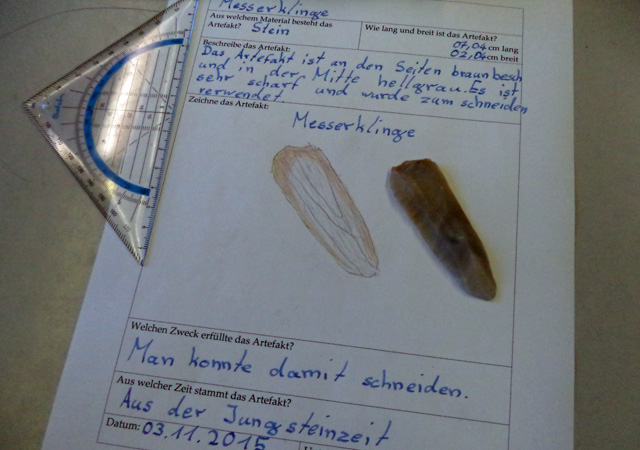 Messerklinge
Aus welchem Material besteht das
Artefakt? Stein
Wie lang und breit ist das Artefakt?
07,04 cm lang
02,04 cm breit
Beschreibe das Artefakt:
Das Artefakt ist an den Seiten braunbesch
und in der Mitte hellgrau. Es ist
sehr scharf und wurde zum schneiden
verwendet.
Zeichne das Artefakt:
Messerklinge
Welchen Zweck erfüllte das Artefakt?
Man konnte damit schneiden.
Aus welcher Zeit stammt das Artefakt?
Aus der Jungsteinzeit
Datum: 03.11.2015